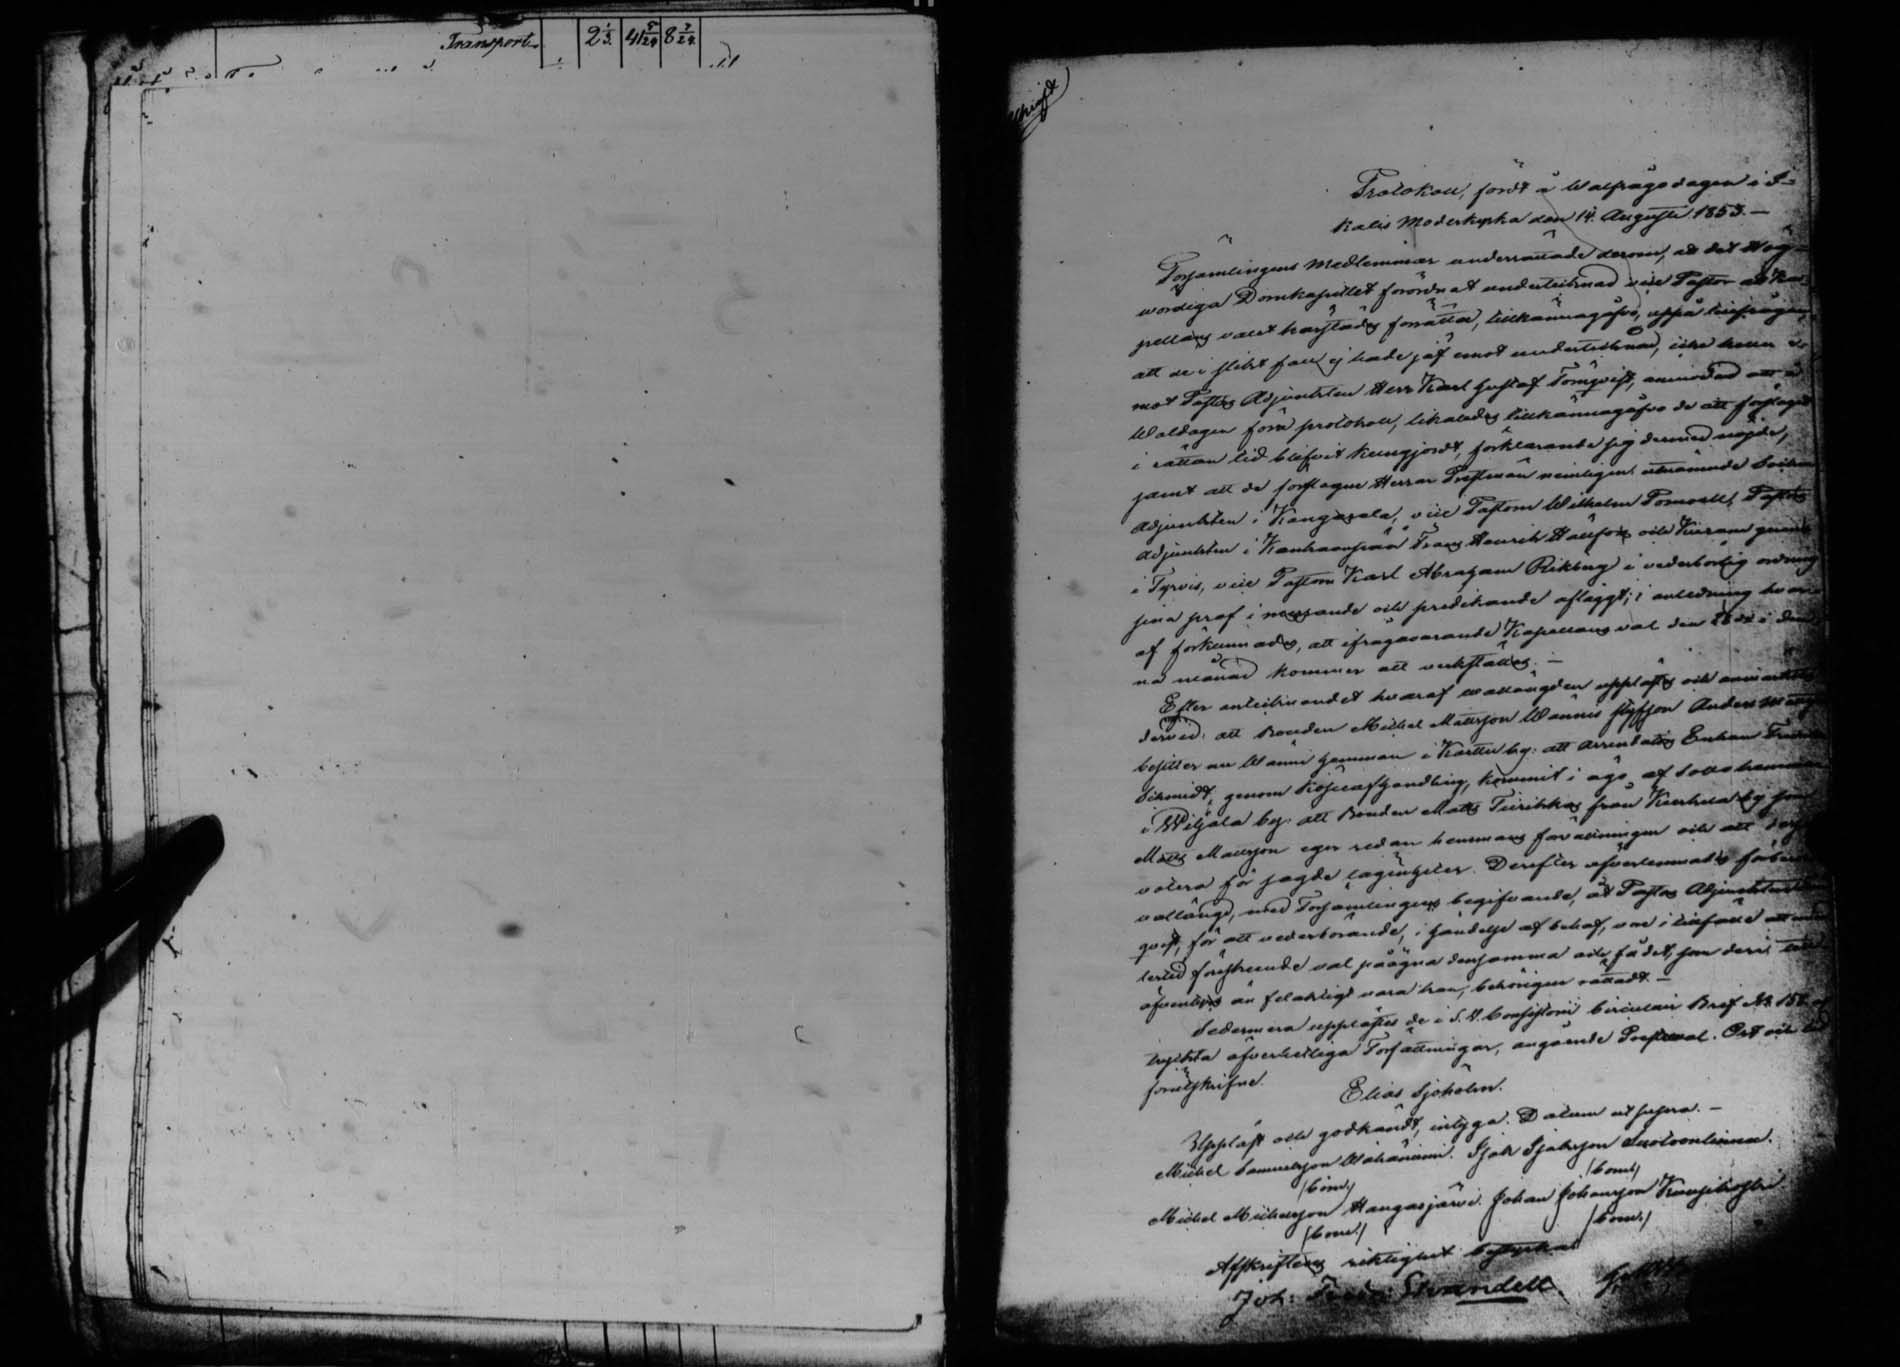 Transport. 2 1/3. 41 5/24 8 7/24.
Protokoll, fördt å Walfrågodagen i I-
kalis Moderkyrka den 14. Augusti 1853. —
Församlingens Medlemmar underrättade derom, att det Hög-
wördiga Domkapitlet förordnat undertecknad vice Pastor att Ka-
pellans valet härstädes förrätta, tillkännagåfvo, uppå tillfrågan,
att de i slikt fall ej hade jäf emot undertecknad, icke heller e-
mot Pastors Adjunkten Herr Karl Gustaf Törnqvist, anmodad att å
Waldagen föra protokoll, likaledes tillkännagåfvo de att förslaget
i rättan tid blifvit kungjordt, förklarande sig dermed nöjde,
samt att de förslagne Herrar Prestmän nemligen
Adjunkten i Kangasala, vice Pastorn Wilhelm Pomoell, Pastors
Adjunkten i Kankaanpää Frans Henrik Hällfors och
i Tyrvis, vice Pastorn Karl Abraham Rikberg i vederbörlig ordning
sina prof i messande och predikande aflaggt; i anledning hvar-
af förkunnades, att ifrågavarande Kapellans val den 28de i den-
na månad kommer att verkställas. —
Efter antecknandet hvaraf vallängden upplästes och anmärktes
dervid: att Bonden Michel Mattsson Wännis styfson Anders
besitter nu Wänni hemman i Karttu by: att Arrendators Enkan
Schmidt, genom Köpeafhandling, kommit i ägo af
i Wiljala by: att Bonden Matts från by
Matts Mattsson eger redan hemmans författningen och att
votera för sagde lägenheter. Derefter öfverlemnades
vallängd, med Församlingens begifvande, åt Pastors Adjunkten
qvist, för att vederbörande, i händelse af behof, vore i tillfälle att
förestående val påögna densamma och få det, som deri
äfventyrs än felaktigt vara kan, behörigen rättadt. —
Sedermera upplästes de i S. V. Consistorii Circulair Bref No 158
tryckta öfverhetliga Författningar, angående Prestval. Ort och tid
förutskrifne.
Elias Sjöholm.
Uppläst och godkändt, intyga. Datum ut supra. —
Michel Samuelsson Wähäniemi. Isak Isaksson
(bomr.) (bomr.)
Michel Michelsson Hangasjärvi. Johan Johansson
(bomr.) (bomr.)
Afskriftens riktighet bestyrka
Joh: Strandell